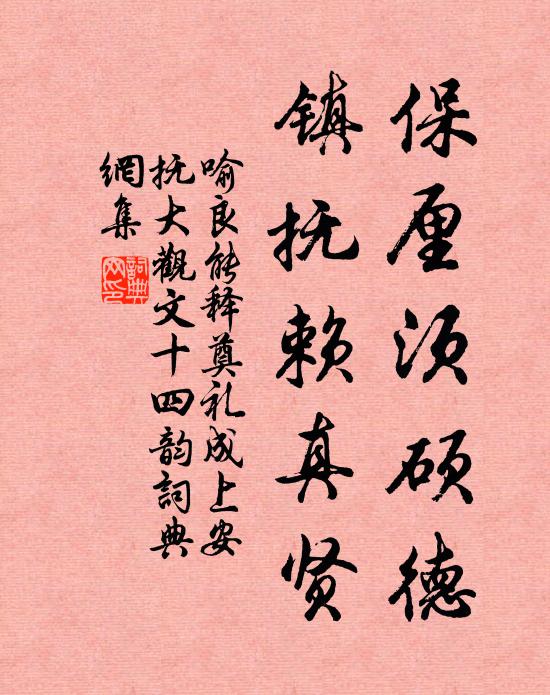 保厘须硕德
镇抚赖真贤
喻良能释奠礼成上安
抚大觀文十四韵詞典
網集
詞典網印